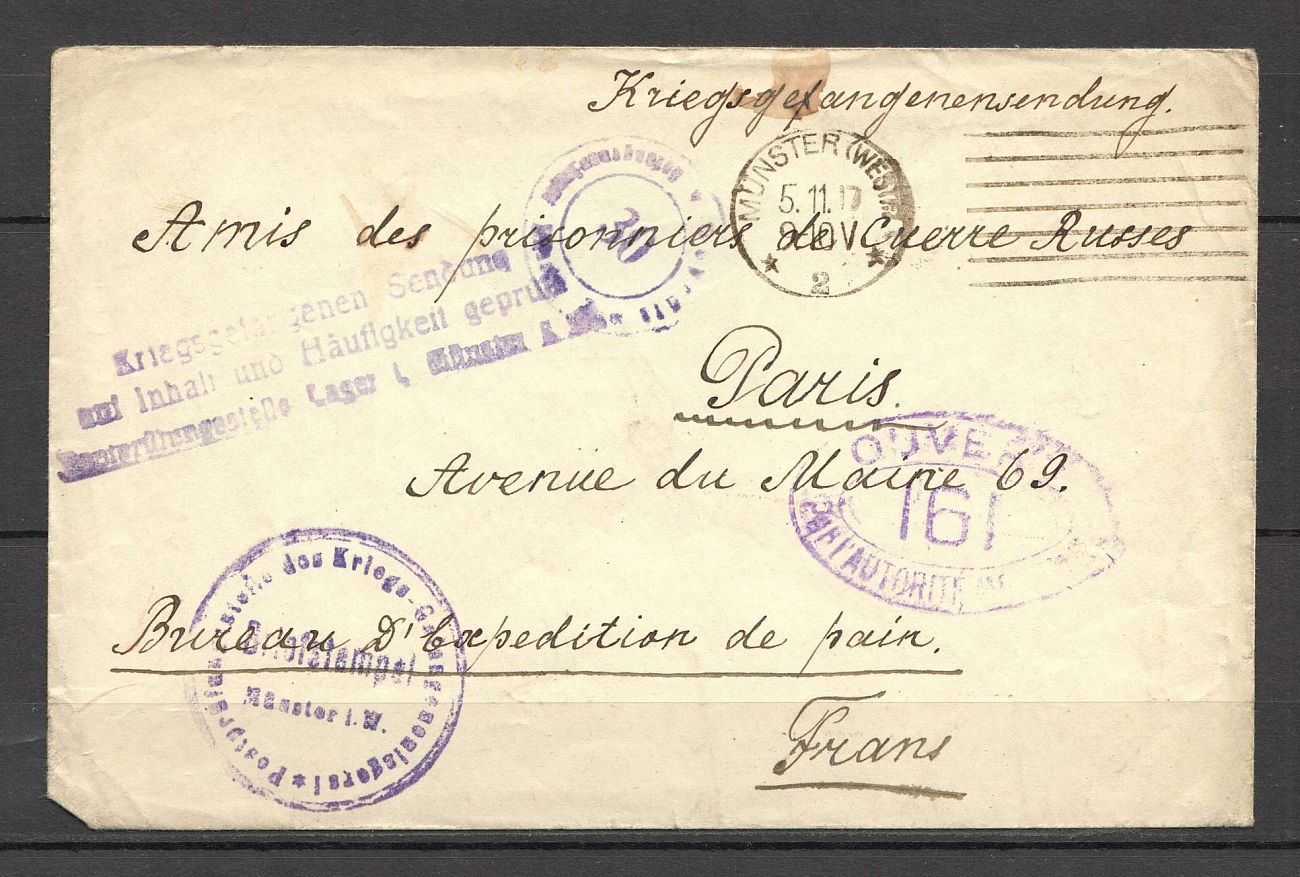 Kriegsgefangenensendung.
MÜNSTER (WESTF.)
5.11.17
8-10V
* 2 *
Amis des prisonniers de Guerre Russes
30
Kriegsgefangenen Sendung
auf Inhalt und Häufigkeit geprüft
Postprüfungsstelle Lager I, Münster i. W.
Paris.
OUVERT
161
PAR L'AUTORITÉ MILITAIRE
Avenue du Maine 69.
Postprüfungsstelle des Kriegs-Gefangenenlagers I *
Briefstempel
Münster i. W.
Bureau D'Expedition de pain.
Frans